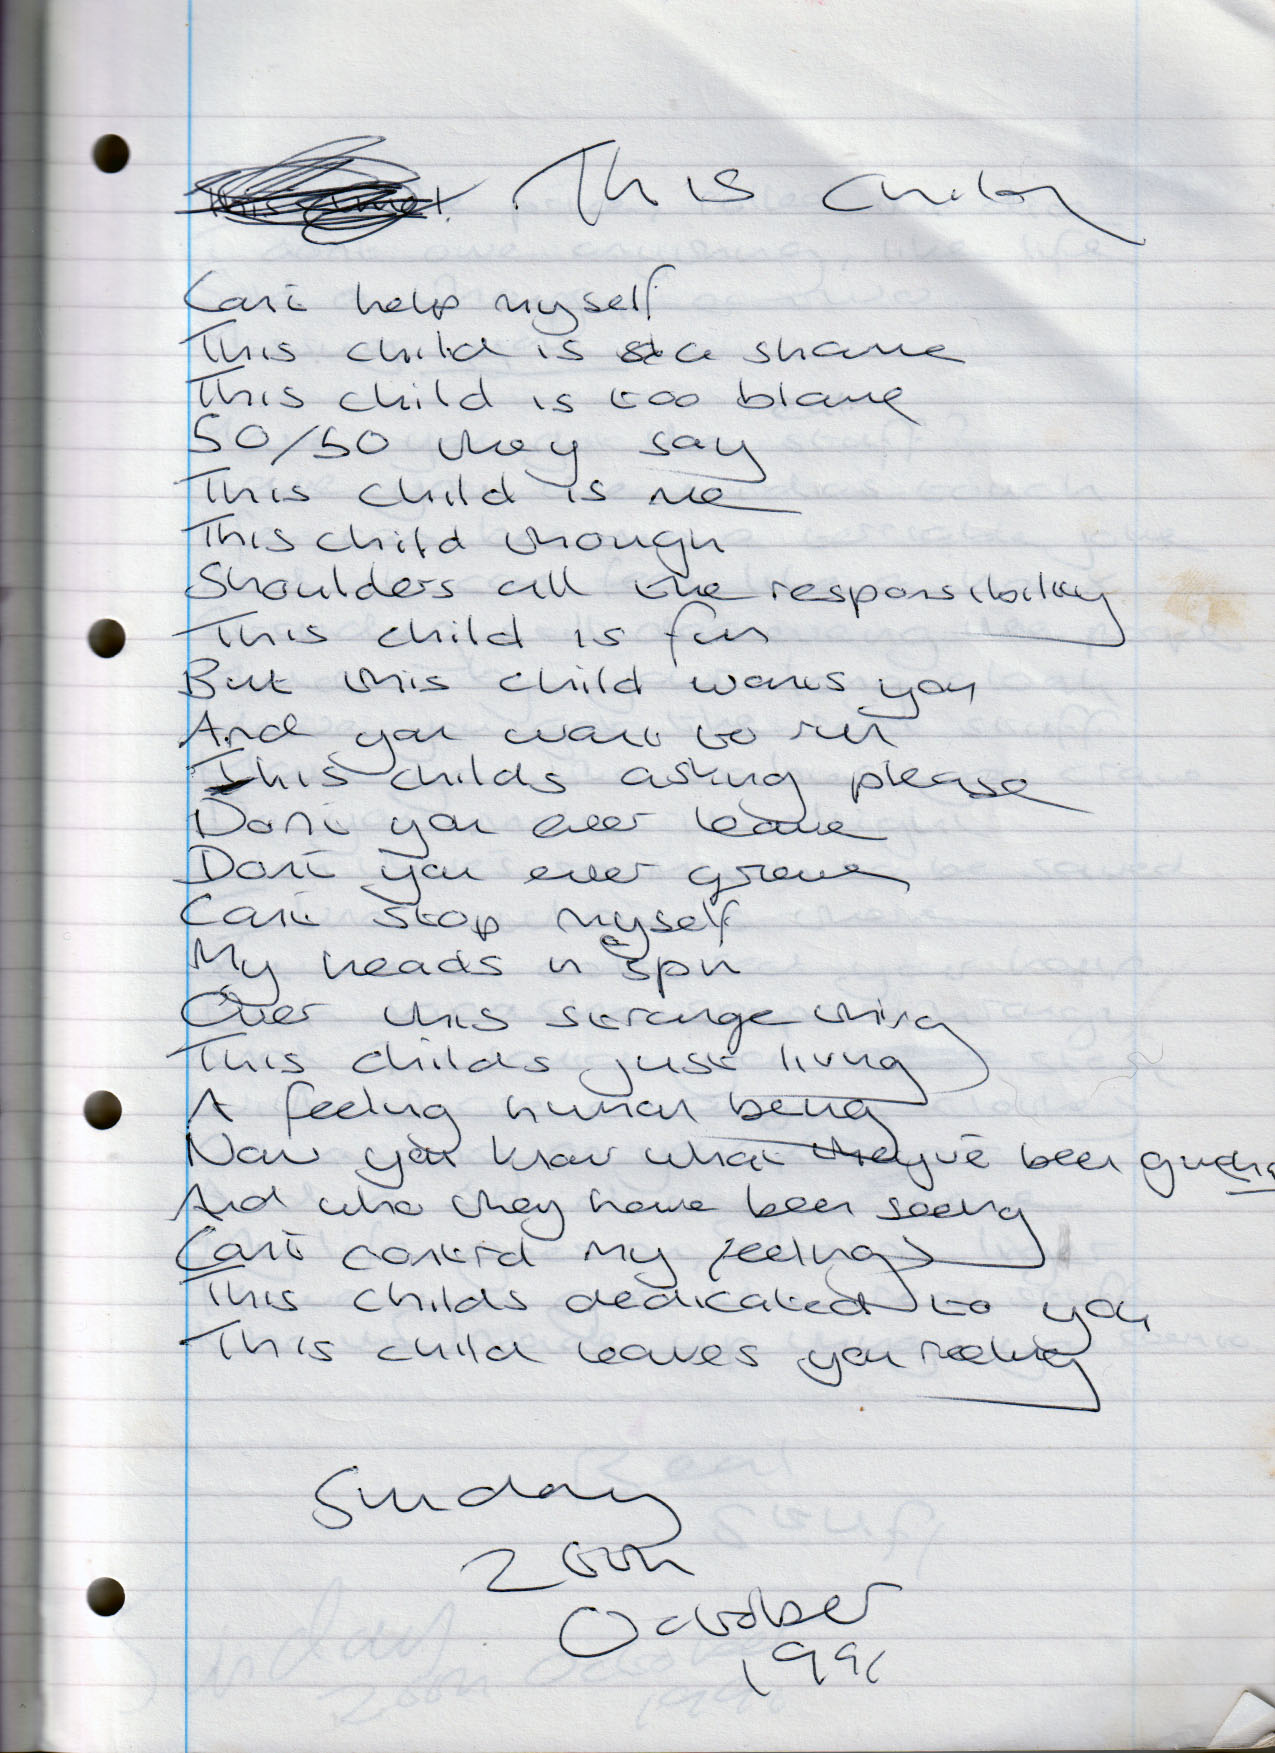 This Child
Can't help myself
This child is a shame
This child is too blame
50/50 they say
This child is me
This child though
Shoulders all the responsibility
This child is fun
But this child wants you
And you want to run
This childs asking please
Don't you ever leave
Don't you ever grieve
Can't stop myself
My heads in a spin
Over this strange thing
This childs just living
A feeling human being
Now you know what they've been
And who they have been seeing
Can't control my feelings
This childs dedicated to you
This child leaves you reeling
Sunday
20th
October
1991